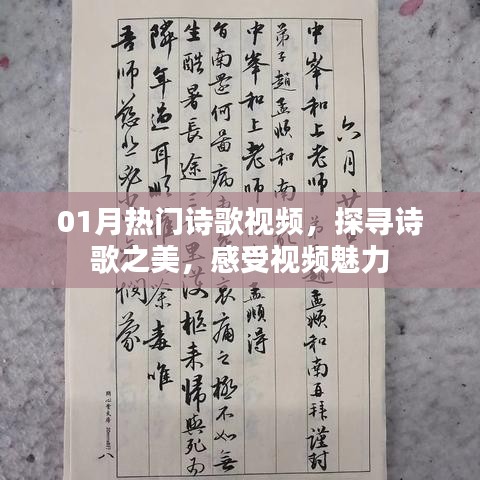 01月热门诗歌视频，探寻诗
歌之美，感受视频魅力
六月廿
中峯和上老师 孟頫和南再拜謹封
弟子趙孟頫和南
中峯和上老师 孟頫得
旨南還何圖病 哀痛之極不如無
生酷暑長途三 里護柩来歸與死为
隣年過耳順 荼毒唯
吾师慈悲 憫蒙
八